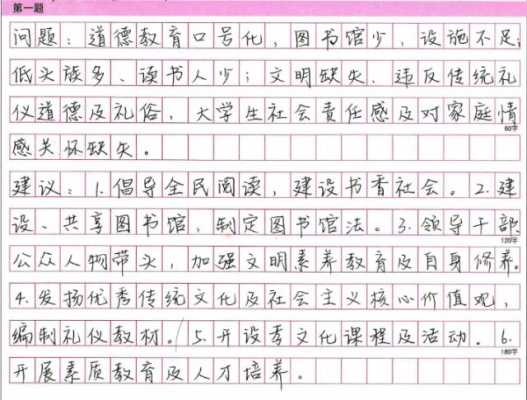 第一题
问题：道德教育口号化，图书馆少，设施不足；
低头族多、读书人少；文明缺失、违反传统礼
仪道德及礼俗，大学生社会责任感及对家庭情
60字
感关怀缺失。
建议：1.倡导全民阅读，建设书香社会。2.建
设、共享图书馆，制定图书馆法。3.领导干部、
120字
公众人物带头，加强文明素养教育及自身修养。
4.发扬优秀传统文化及社会主义核心价值观，
编制礼仪教材。5.开设孝文化课程及活动。6.
180字
开展素质教育及人才培养。